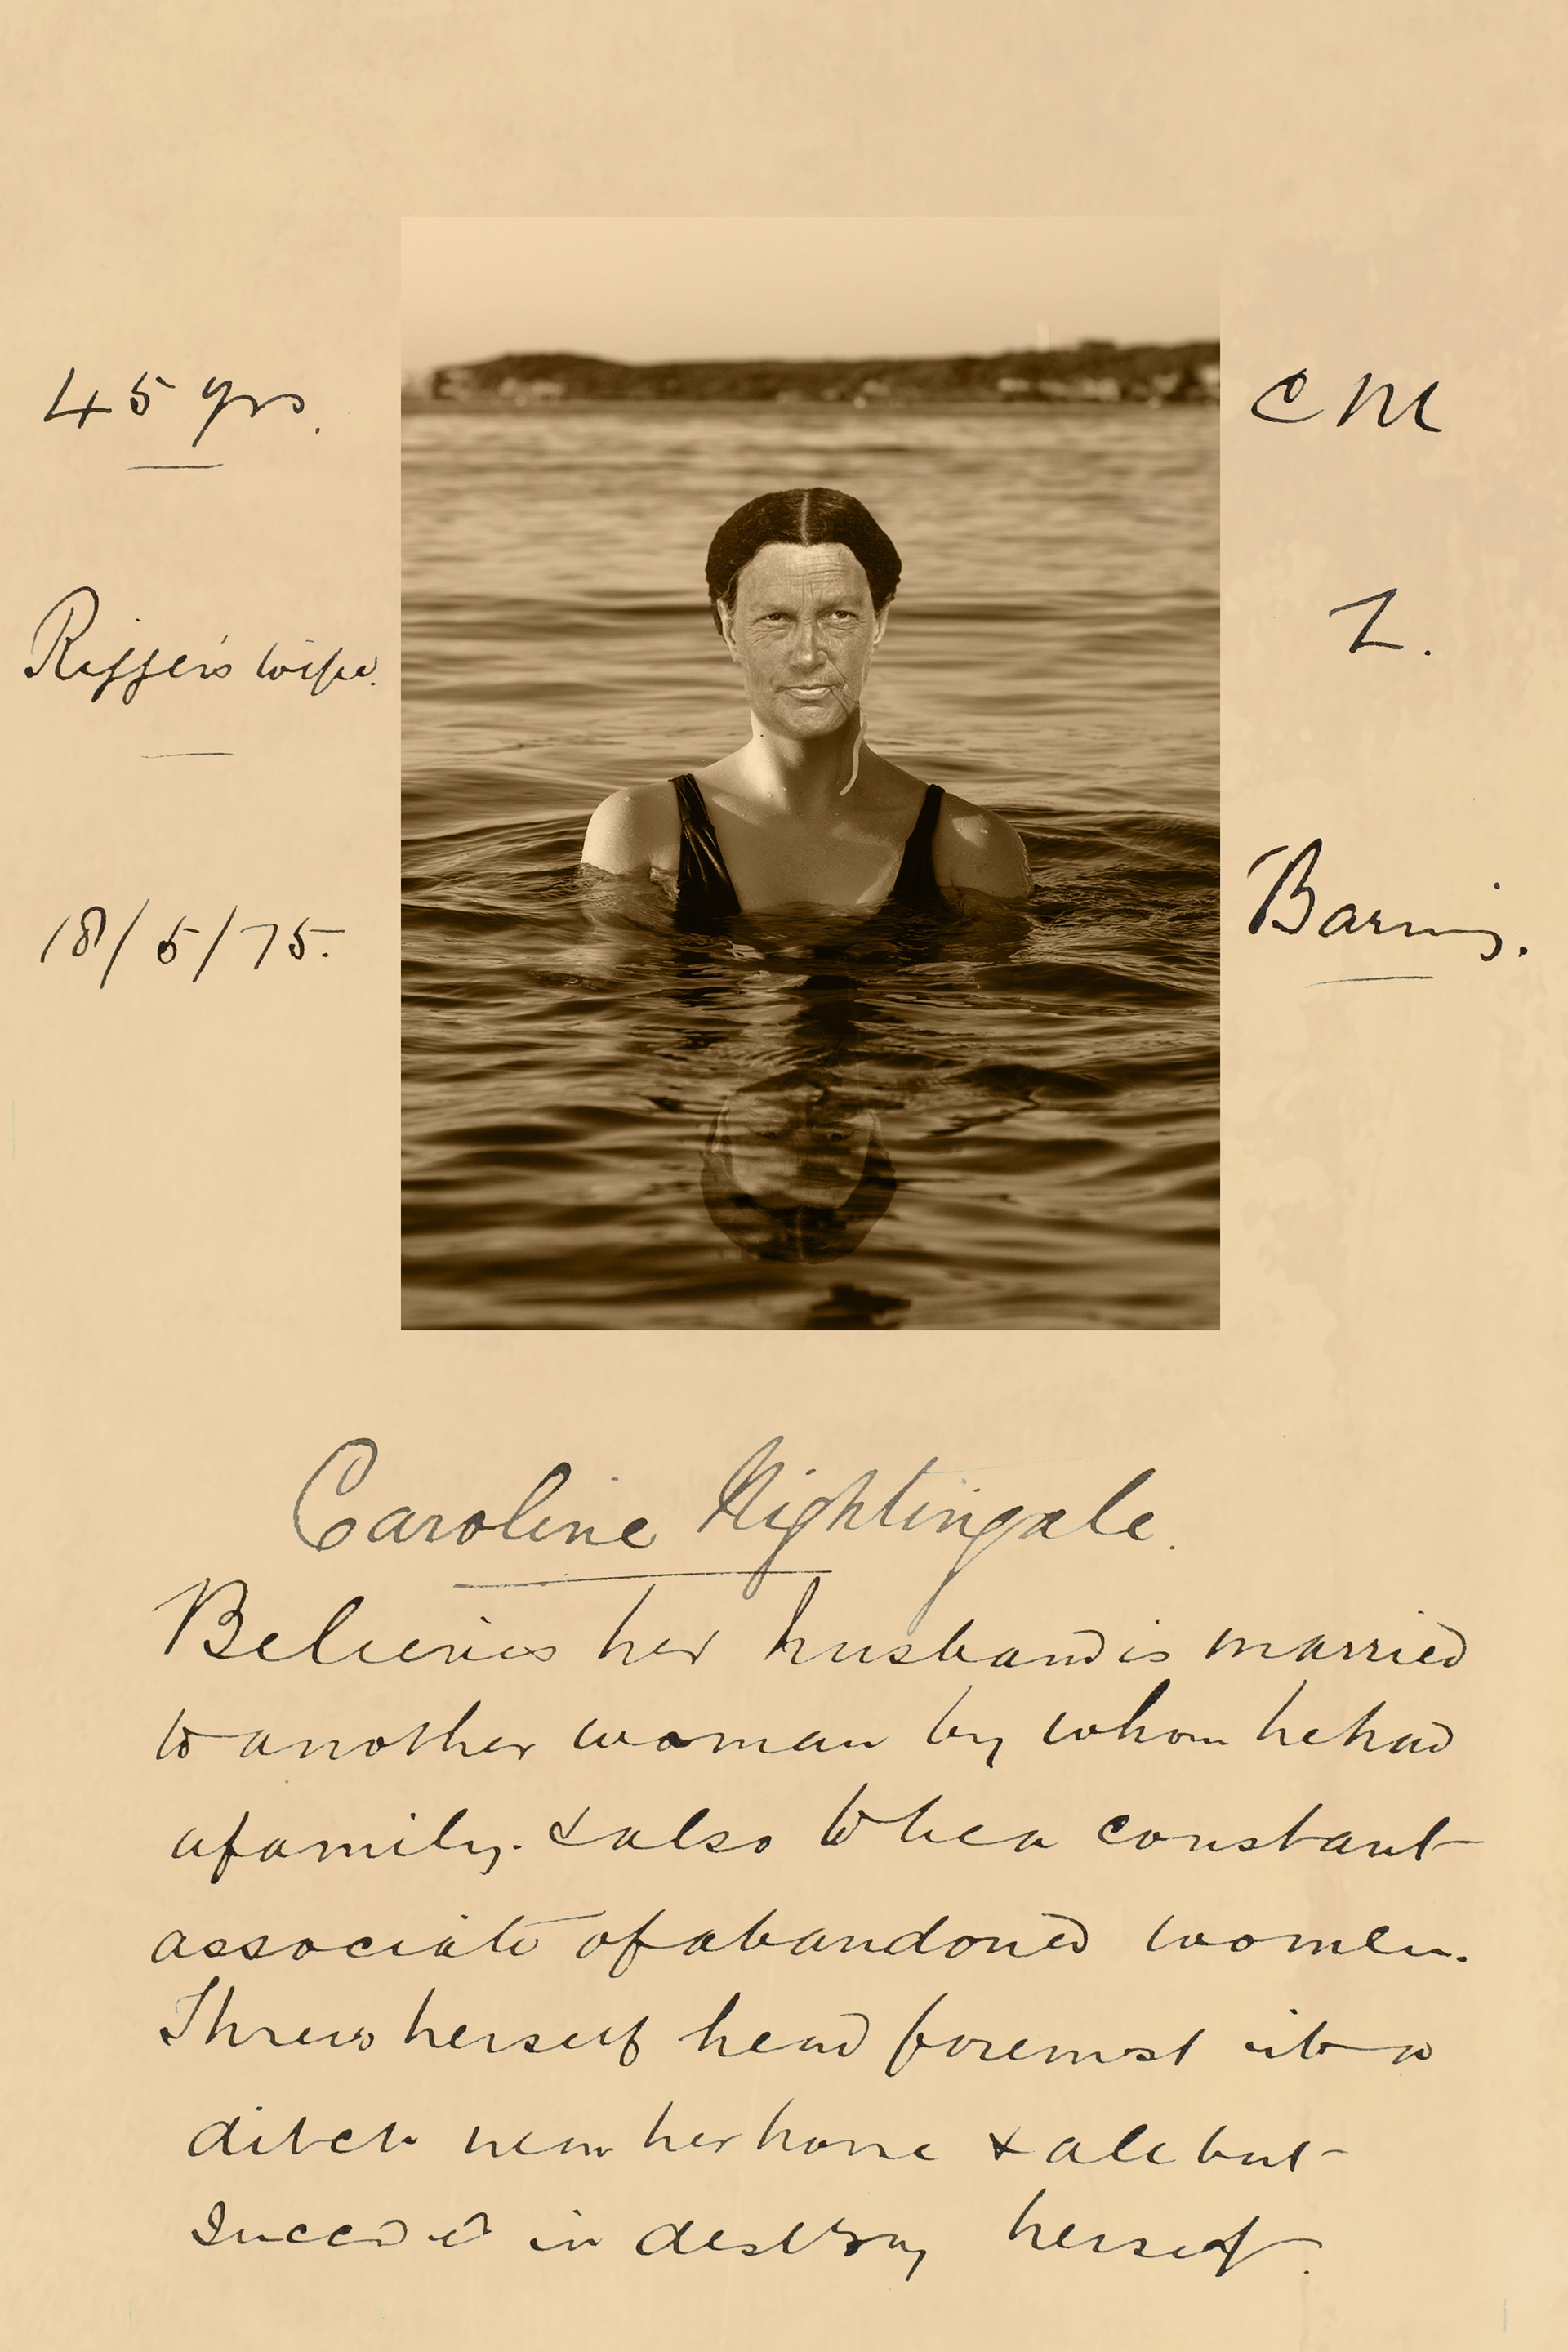 45 yrs.
C M
Rigger's wife.
18/5/75.
Caroline Nightingale.
Believes her husband is married
to another woman by whom he had
a family. & also to be a constant
associate of abandoned women.
Threw herself head foremost into a
ditch near her home & all but
succeeded in destroy herself.